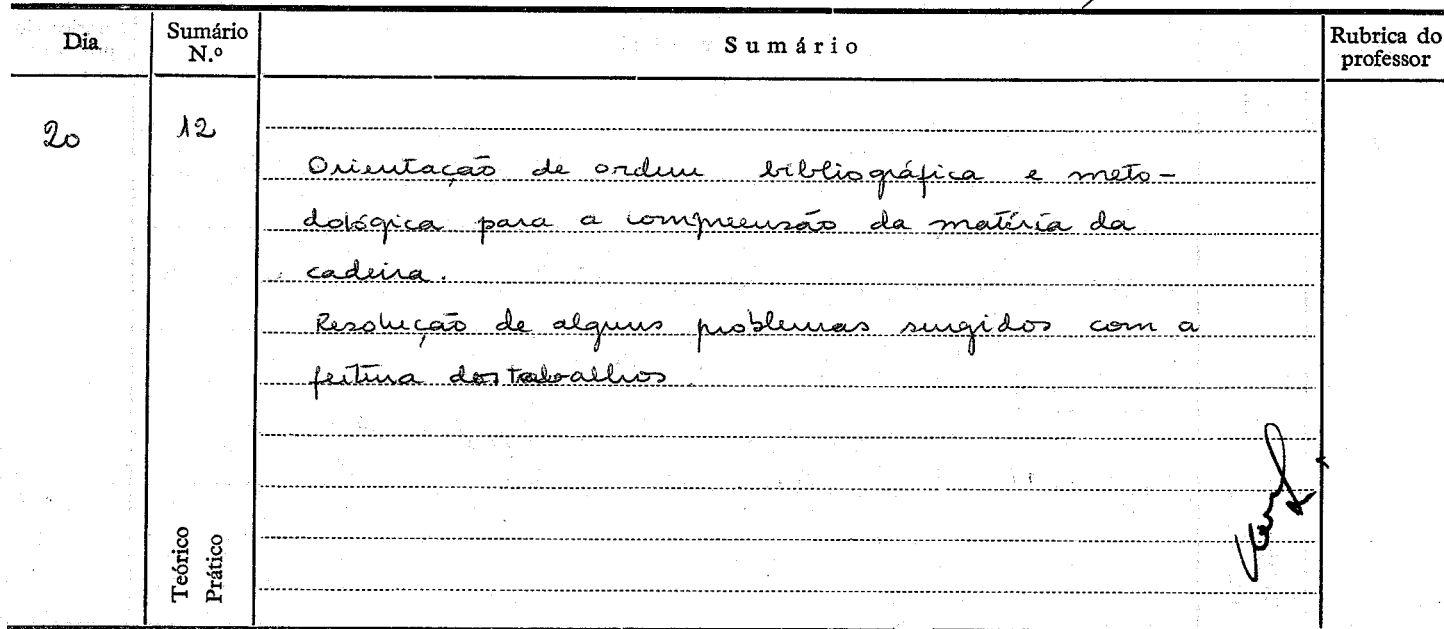 Dia Sumário N.º Sumário Rubrica do professor
20 12
Orientação de ordem bibliográfica e meto-
dológica para a compreensão da matéria da
cadeira.
Resolução de alguns problemas surgidos com a
feitura dos trabalhos
Teórico
Prático